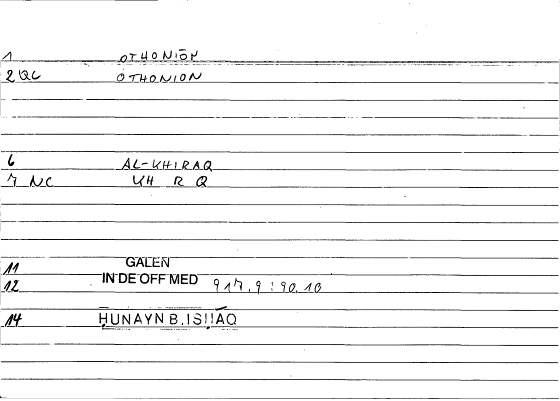 1 OTHONIŌN
2 QL OTHONION
6 AL-KHIRAQ
7 NC KH R Q
11 GALEN
12 IN DE OFF MED 917.9 : 90.10
14 ḤUNAYN B. ISḤĀQ